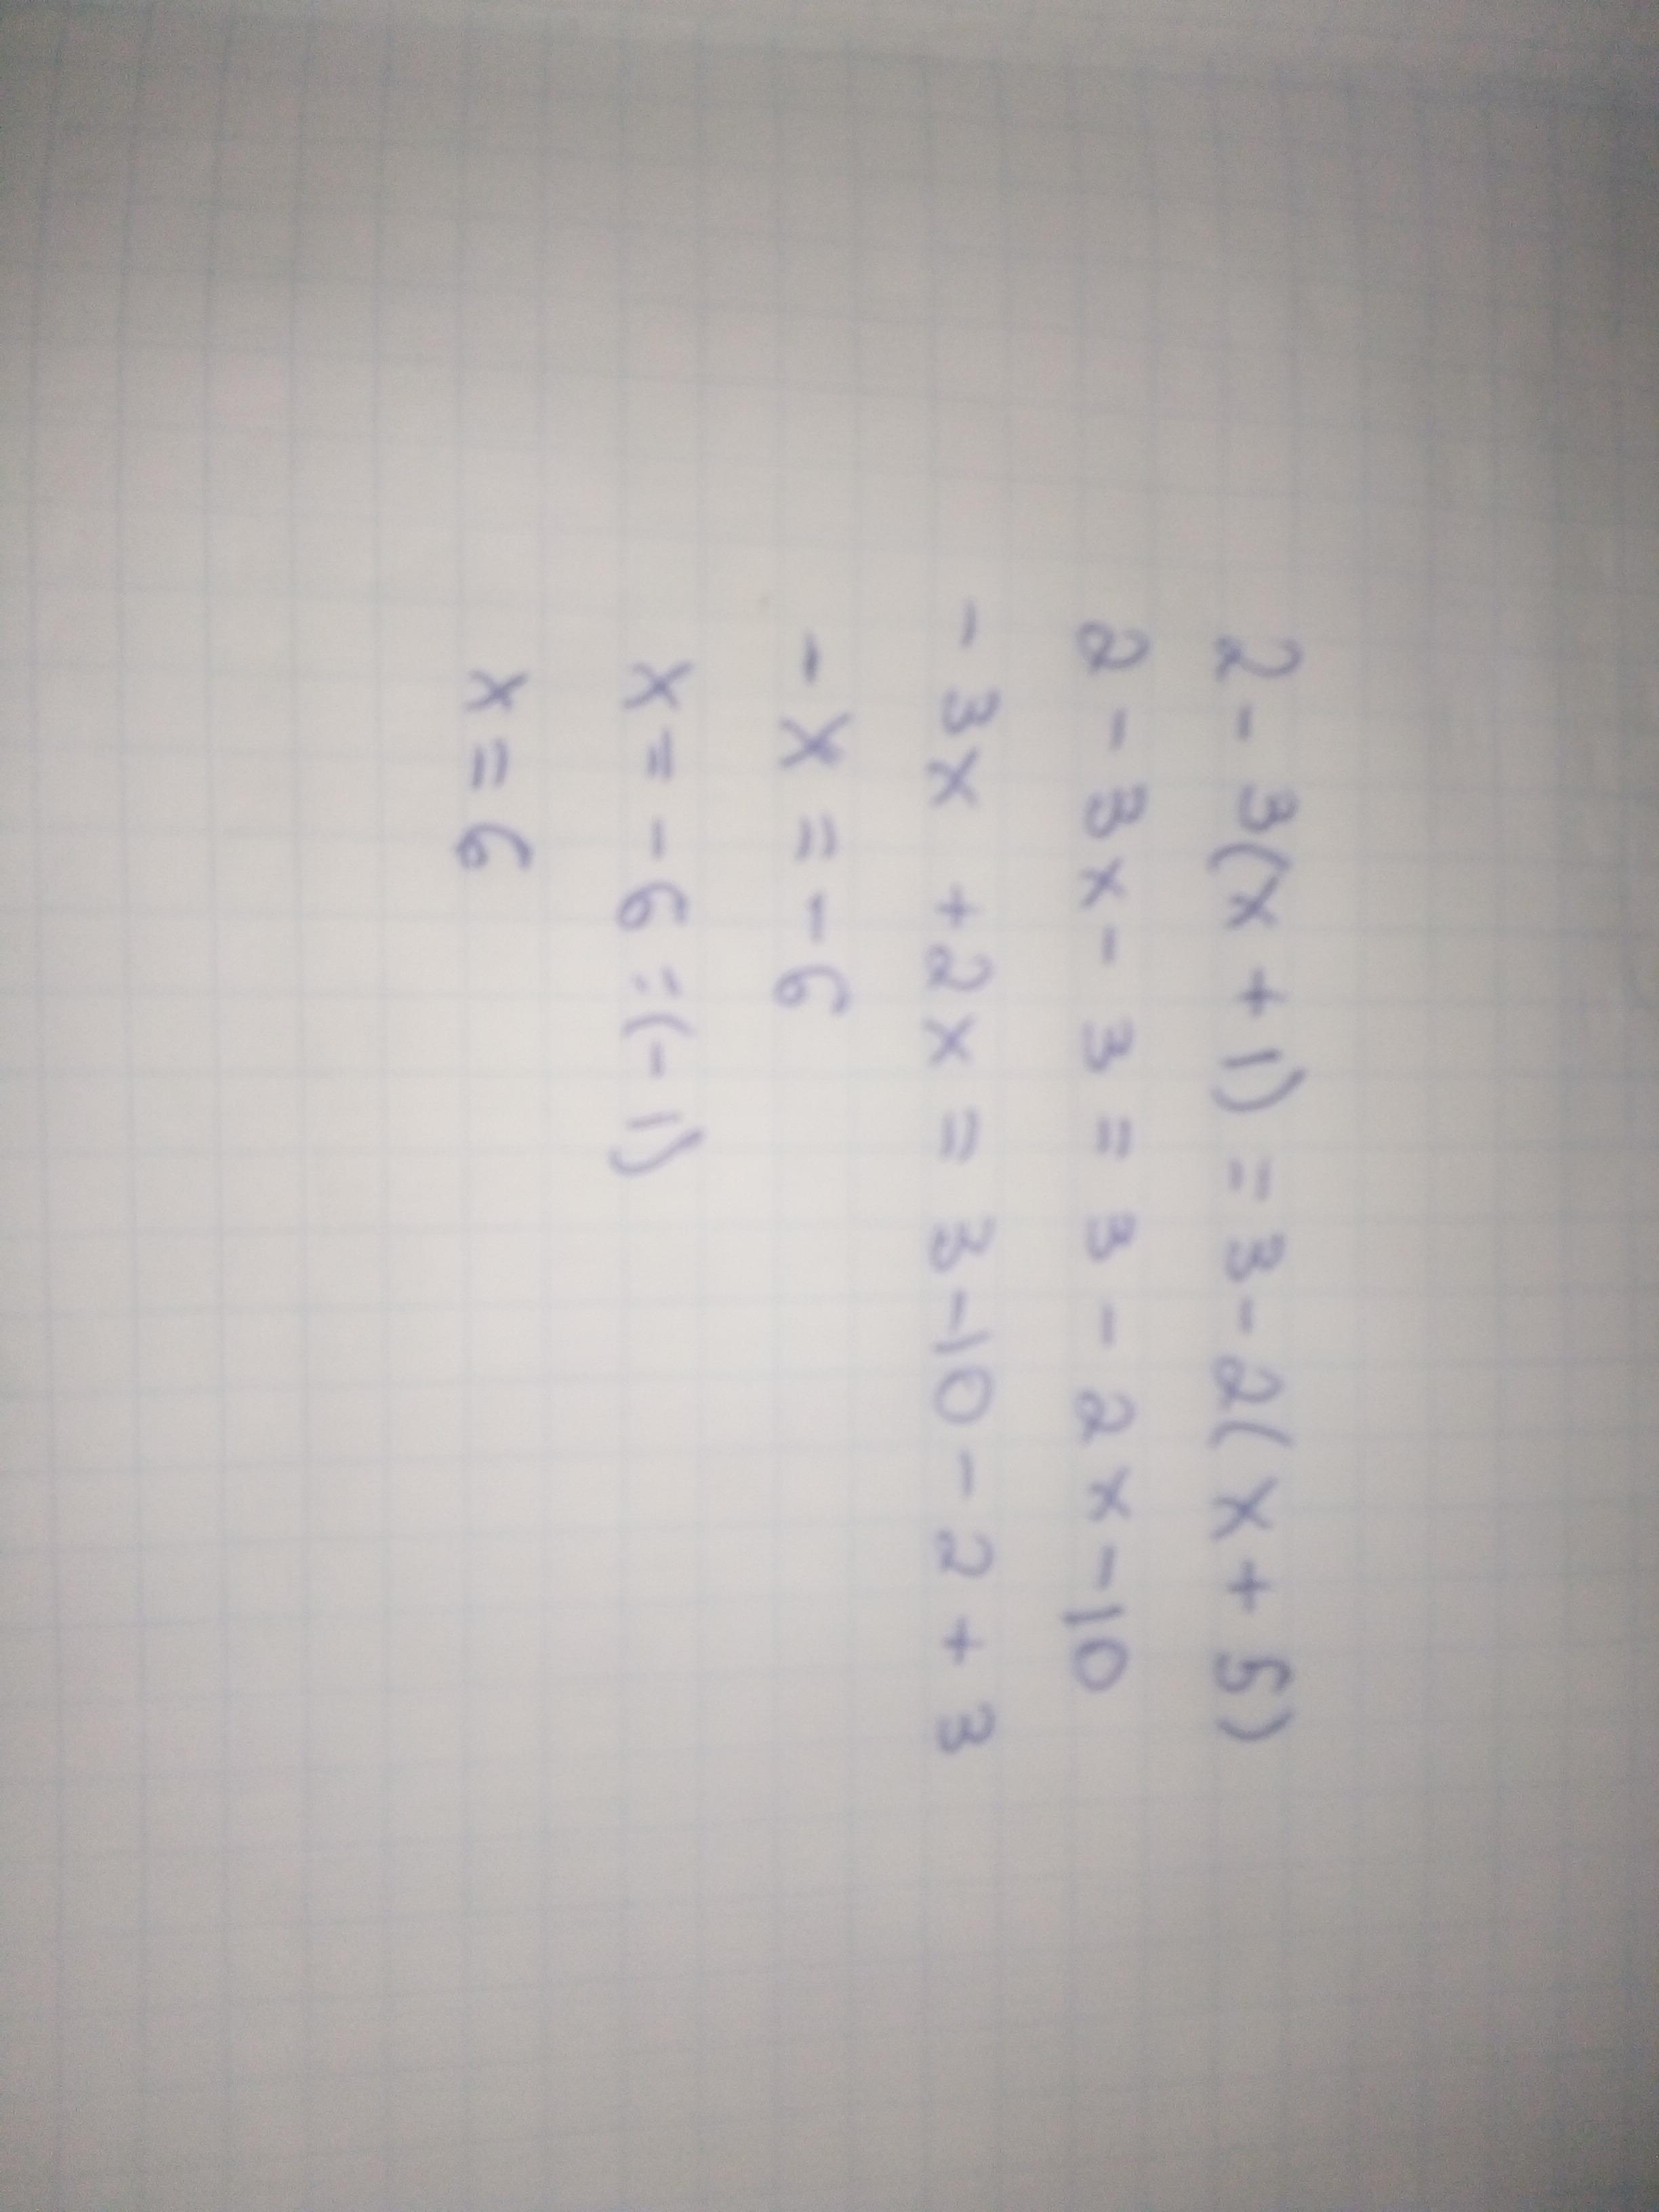 2 - 3(x + 1) = 3 - 2(x + 5)
2 - 3x - 3 = 3 - 2x - 10
- 3x + 2x = 3 - 10 - 2 + 3
- x = - 6
x = - 6 : (- 1)
x = 6